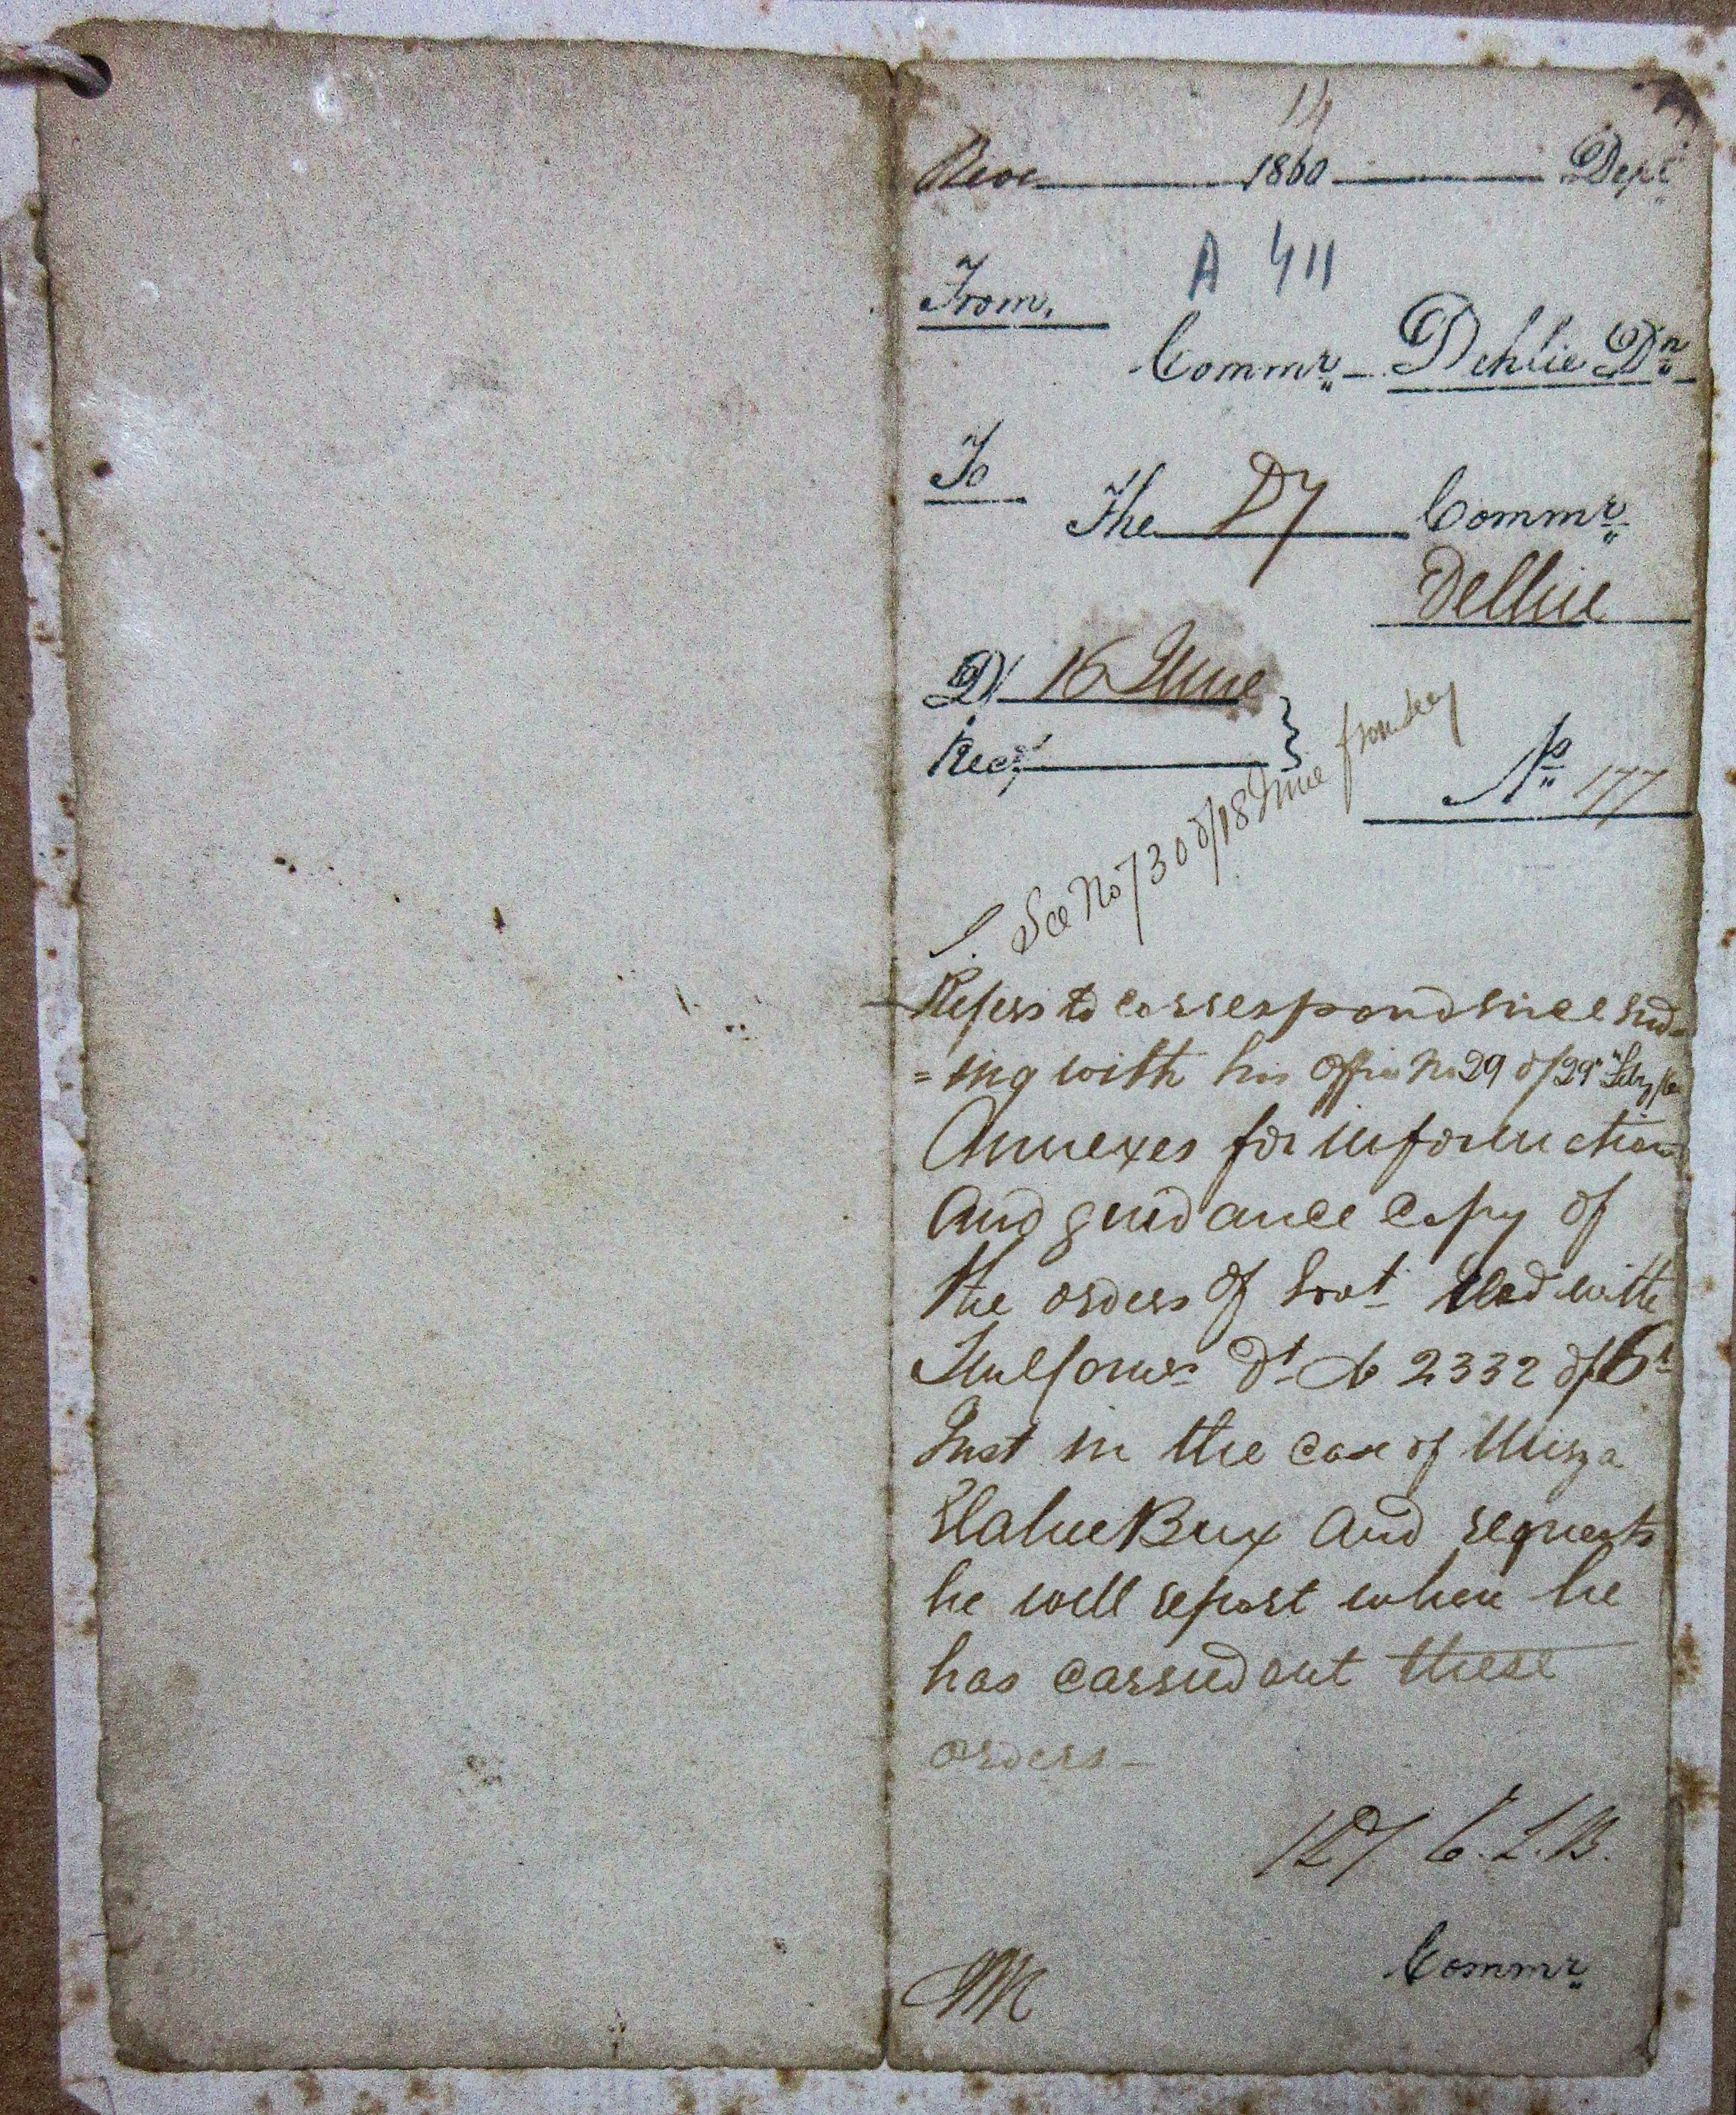 14
Reve 1860 Dept
A 411
From,
Commr - Dehlie Dn
To
The Dy Commr
Delhie
D/ 16 June
Recd
No 177
See No 730 d/18 June
Refers to correspondence end-
=ing with his office No 29 d/29th Feby
Annexes for information
and guidance copy of
the orders of Govt recd with
dt No 2332 d/6th
Inst in the case of Mirza
Elahee Bux and requests
he will report when he
has carried out these
orders -
Commr